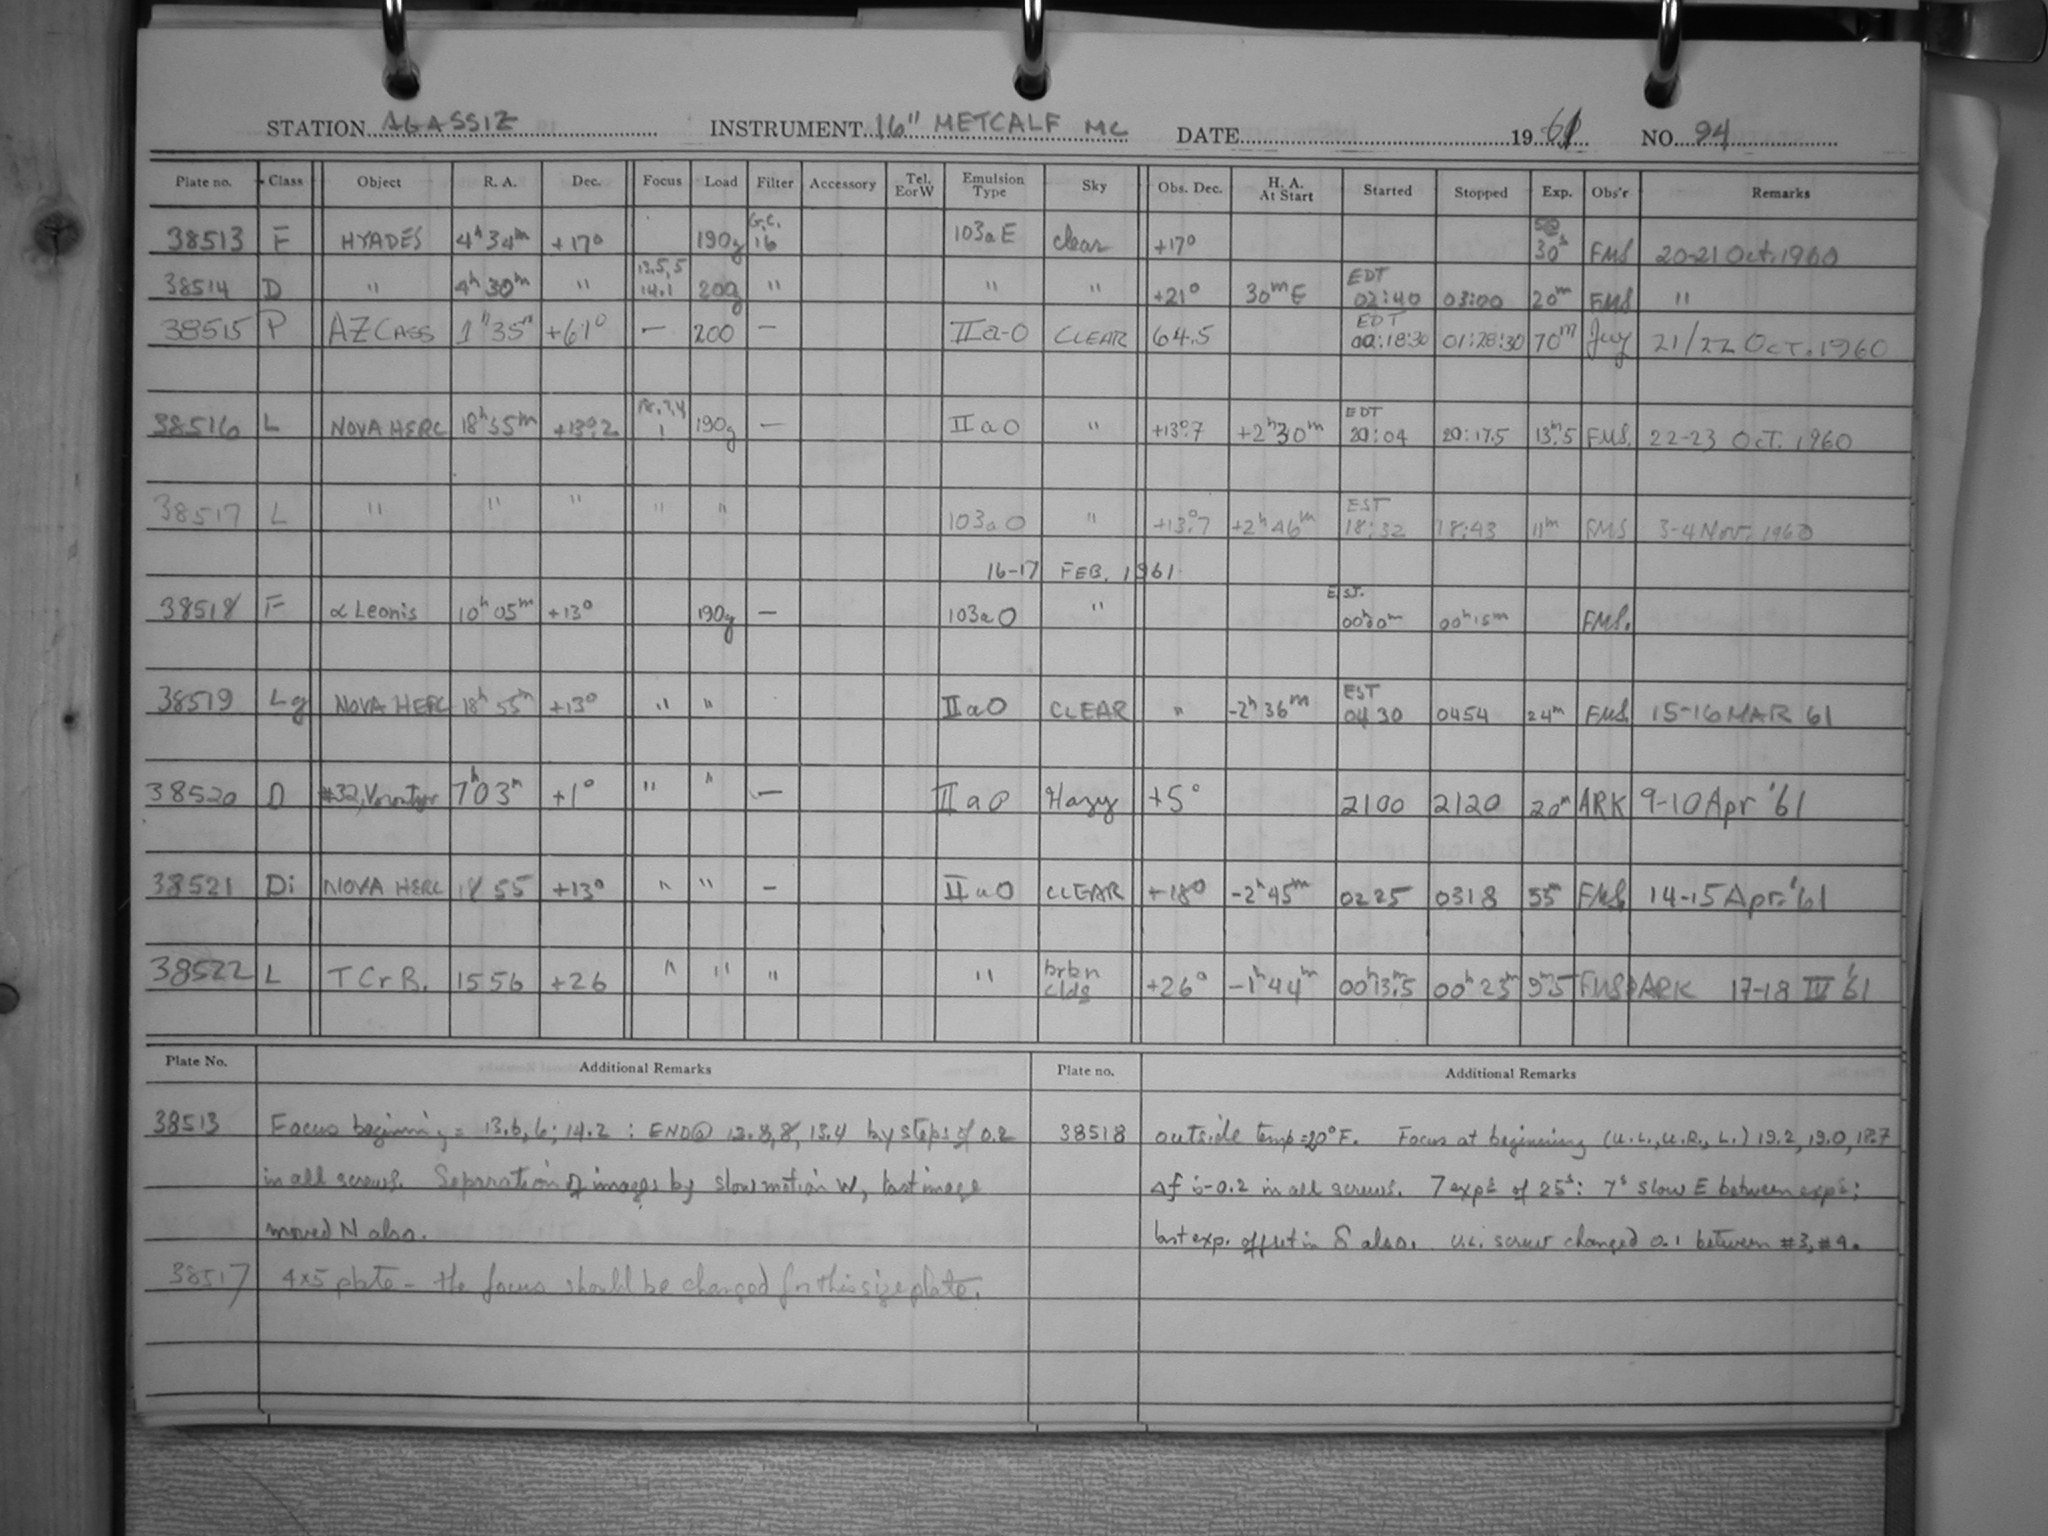 STATION AGASSIZ INSTRUMENT 16" METCALF MC DATE 1961 NO. 94
Plate no. Class Object R. A. Dec. Focus Load Filter Accessory Tel. E or W Emulsion Type Sky Obs. Dec. H. A. At Start Started Stopped Exp. Obs'r Remarks
38513 F HYADES 4h 34m +17° 190g G.C. 16 103aE clear +17° 30s FMS 20-21 Oct. 1960
38514 D " 4h 30m " 13.5, 5 14.1 200g " " " +21° 30m E EDT 02:40 03:00 20m FMS "
38515 P AZ CASS 1h 35m +61° - 200 - IIa-O CLEAR 64.5 EDT 00:18:30 01:28:30 70m 21/22 OCT. 1960
38516 L NOVA HERC 18h 55m +13°.2 190g - IIaO " +13°.7 +2h30m EDT 20:04 20:17.5 13m.5 FMS. 22-23 OCT. 1960
38517 L " " " " " 103aO " +13°.7 +2h46m EST 18:32 18:43 11m FMS 3-4 Nov. 1960
16-17 FEB. 1961
38518 F α Leonis 10h 05m +13° 190g - 103aO " E.S.T. 00h15m FMS.
38519 Lg NOVA HERC 18h 55m +13° " " IIaO CLEAR " -2h36m EST 0430 0454 24m FMS. 15-16 MAR 61
38520 D #32, 7h03m +1° " " - IIaO Hazy +5° 2100 2120 20m ARK 9-10 Apr '61
38521 Di NOVA HERC 18 55 +13° " " - IIaO CLEAR +18° -2h45m 0225 0318 55m FMS. 14-15 Apr. '61
38522 L T Cr B. 15 56 +26 " " " " brkn clds +26° -1h44m 00h13m.5 00h23m 9m.5 FMS ARK 17-18 IV '61
Plate No. Additional Remarks Plate no. Additional Remarks
38513 Focus beginning = 13.6, 6; 14.2 : END@ 12.8, 8, 13.4 by steps of 0.2
in all screws. Separation of images by slow motion W, last image
moved N also.
38517 4x5 plate - the focus should be changed for this size plate.
38518 outside temp = 20°F. Focus at beginning (U.L., U.R., L.) 19.2, 19.0, 18.7
Δf is -0.2 in all screws. 7 exps of 25s: 7s slow E between exps;
last exp. offset in δ also. U.L. screw changed 0.1 between #3, #4.